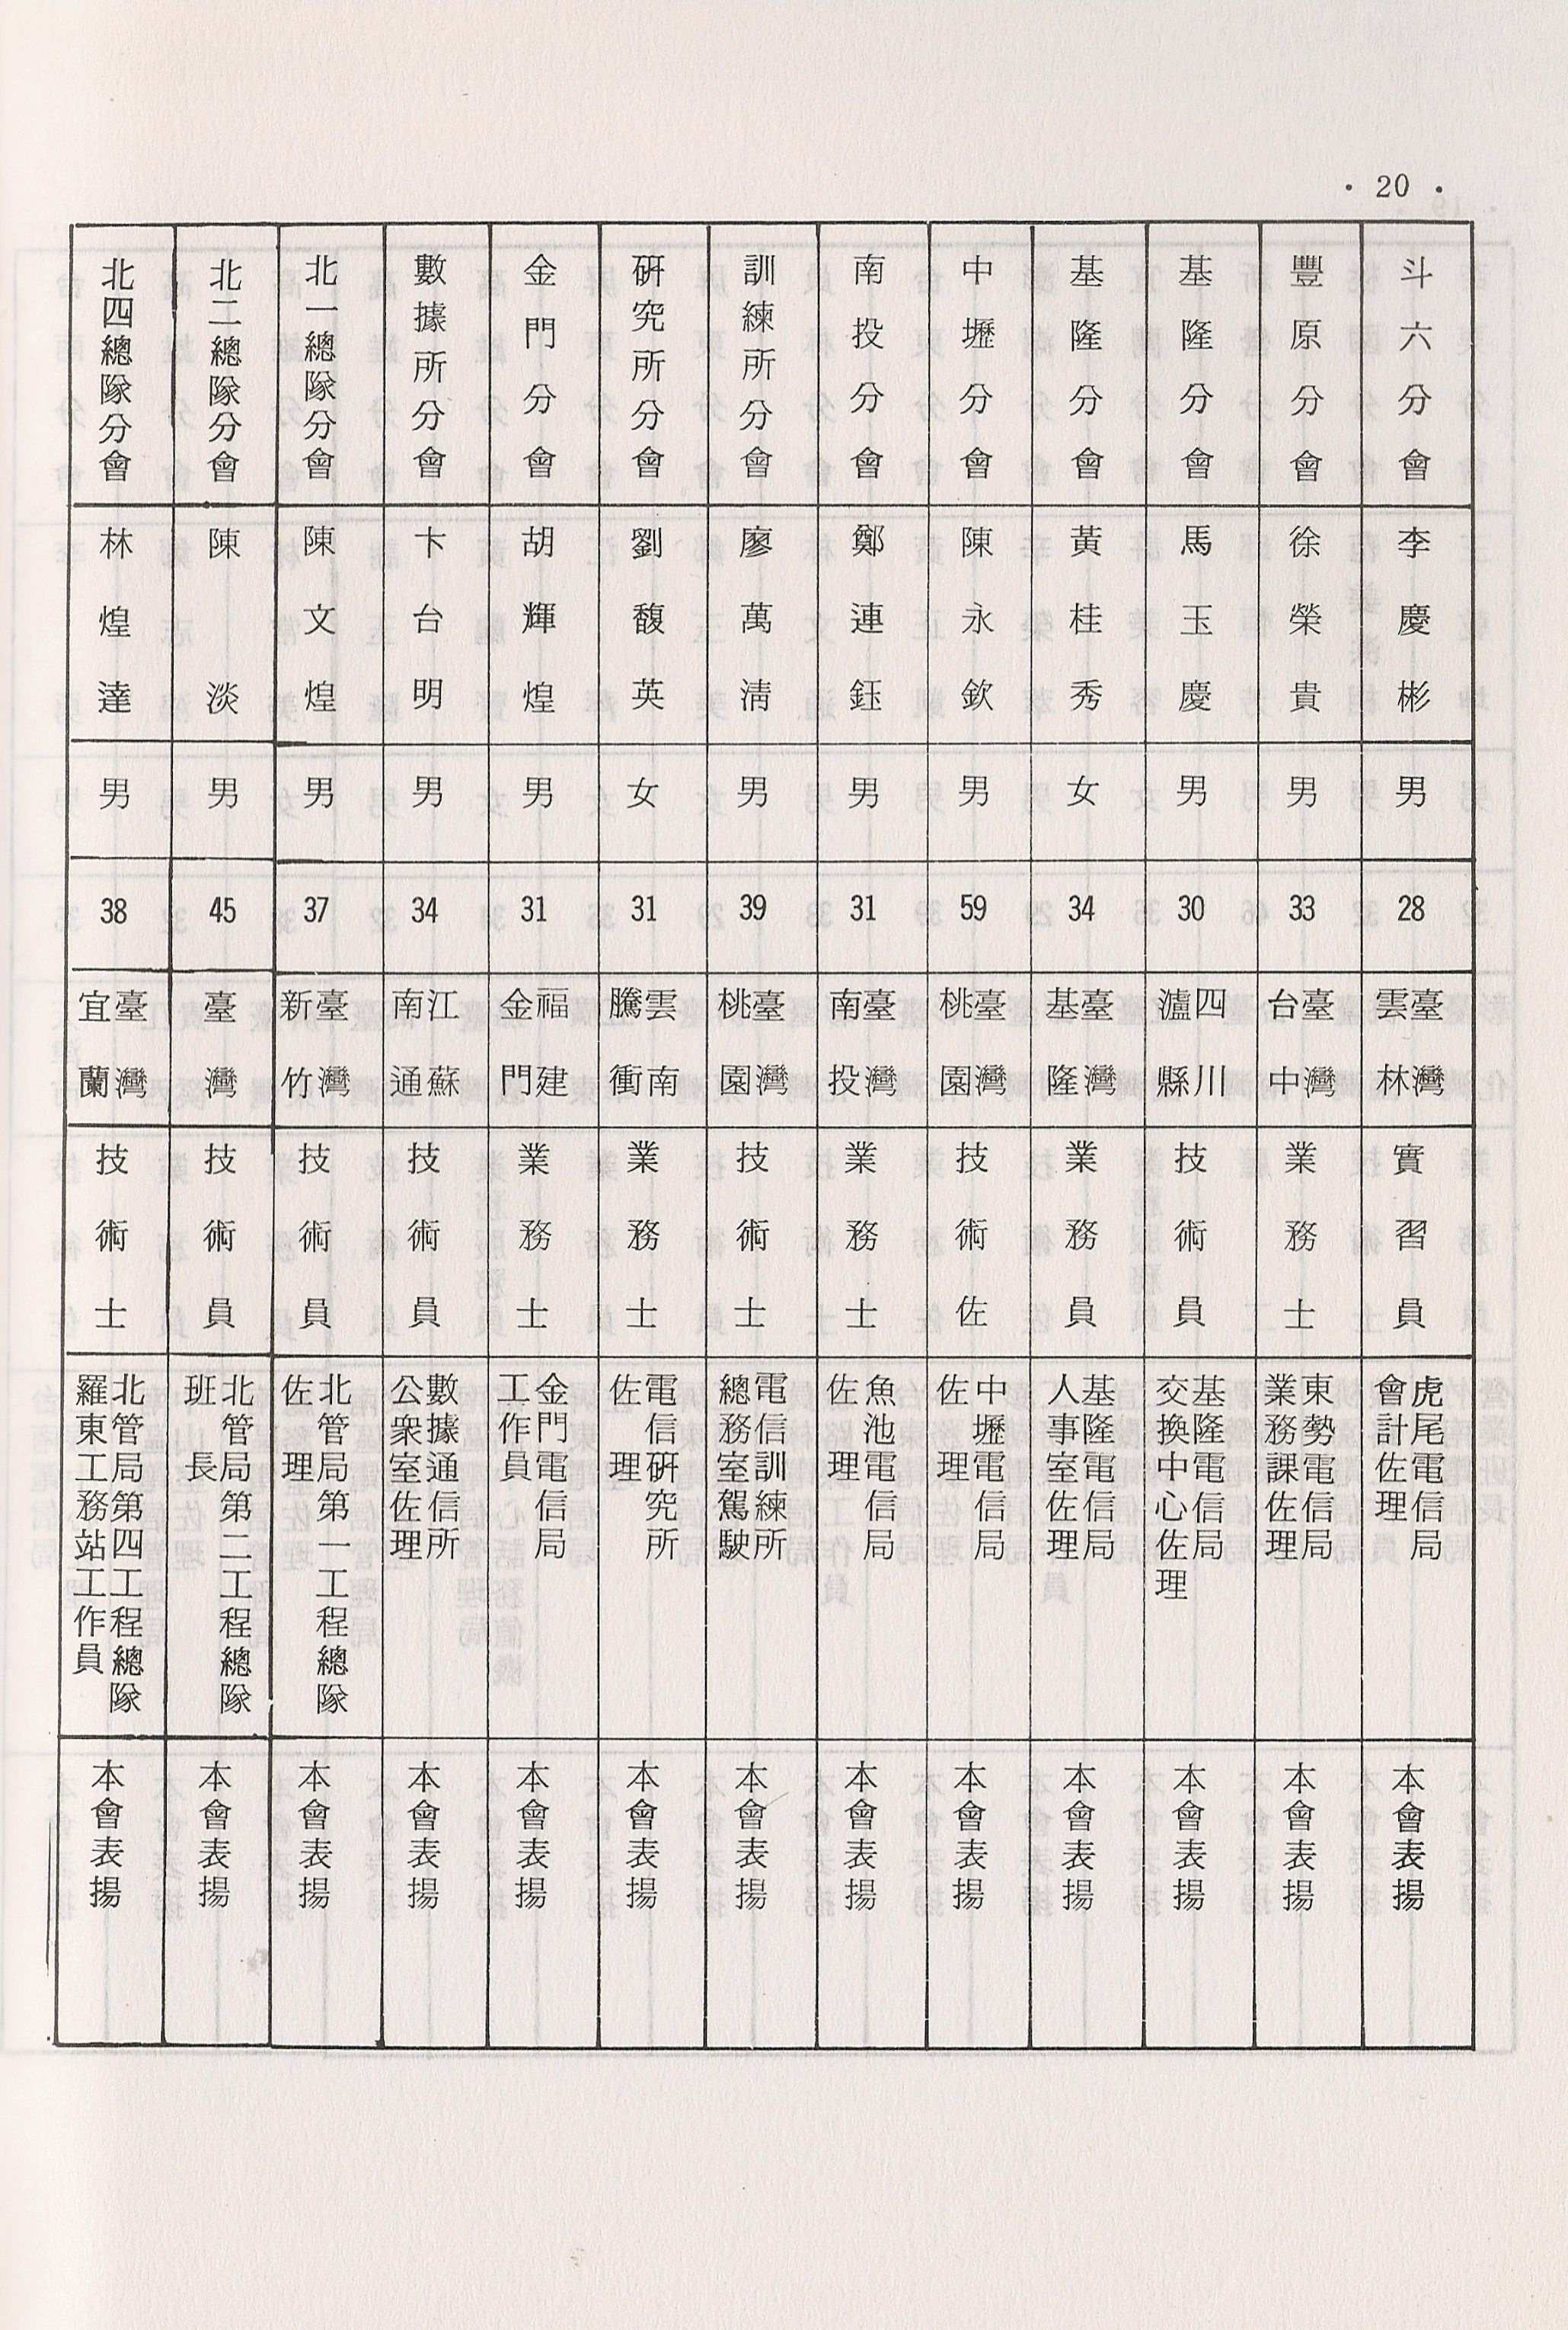 · 20 ·
斗六分會
李慶彬
男
28
臺灣
雲林
實習員
虎尾電信局
會計佐理
本會表揚
豐原分會
徐榮貴
男
33
臺灣
台中
業務士
東勢電信局
業務課佐理
本會表揚
基隆分會
馬玉慶
男
30
四川
瀘縣
技術員
基隆電信局
交換中心佐理
本會表揚
基隆分會
黃桂秀
女
34
臺灣
基隆
業務員
基隆電信局
人事室佐理
本會表揚
中壢分會
陳永欽
男
59
臺灣
桃園
技術佐
中壢電信局
佐理
本會表揚
南投分會
鄭連鈺
男
31
臺灣
南投
業務士
魚池電信局
佐理
本會表揚
訓練所分會
廖萬清
男
39
臺灣
桃園
技術士
電信訓練所
總務室駕駛
本會表揚
研究所分會
劉馥英
女
31
雲南
騰衝
業務士
電信研究所
佐理
本會表揚
金門分會
胡輝煌
男
31
福建
金門
業務士
金門電信局
工作員
本會表揚
數據所分會
卞台明
男
34
江蘇
南通
技術員
數據通信所
公衆室佐理
本會表揚
北一總隊分會
陳文煌
男
37
臺灣
新竹
技術員
北管局第一工程總隊
佐理
本會表揚
北二總隊分會
陳淡
男
45
臺灣
技術員
北管局第二工程總隊
班長
本會表揚
北四總隊分會
林煌達
男
38
臺灣
宜蘭
技術士
北管局第四工程總隊
羅東工務站工作員
本會表揚